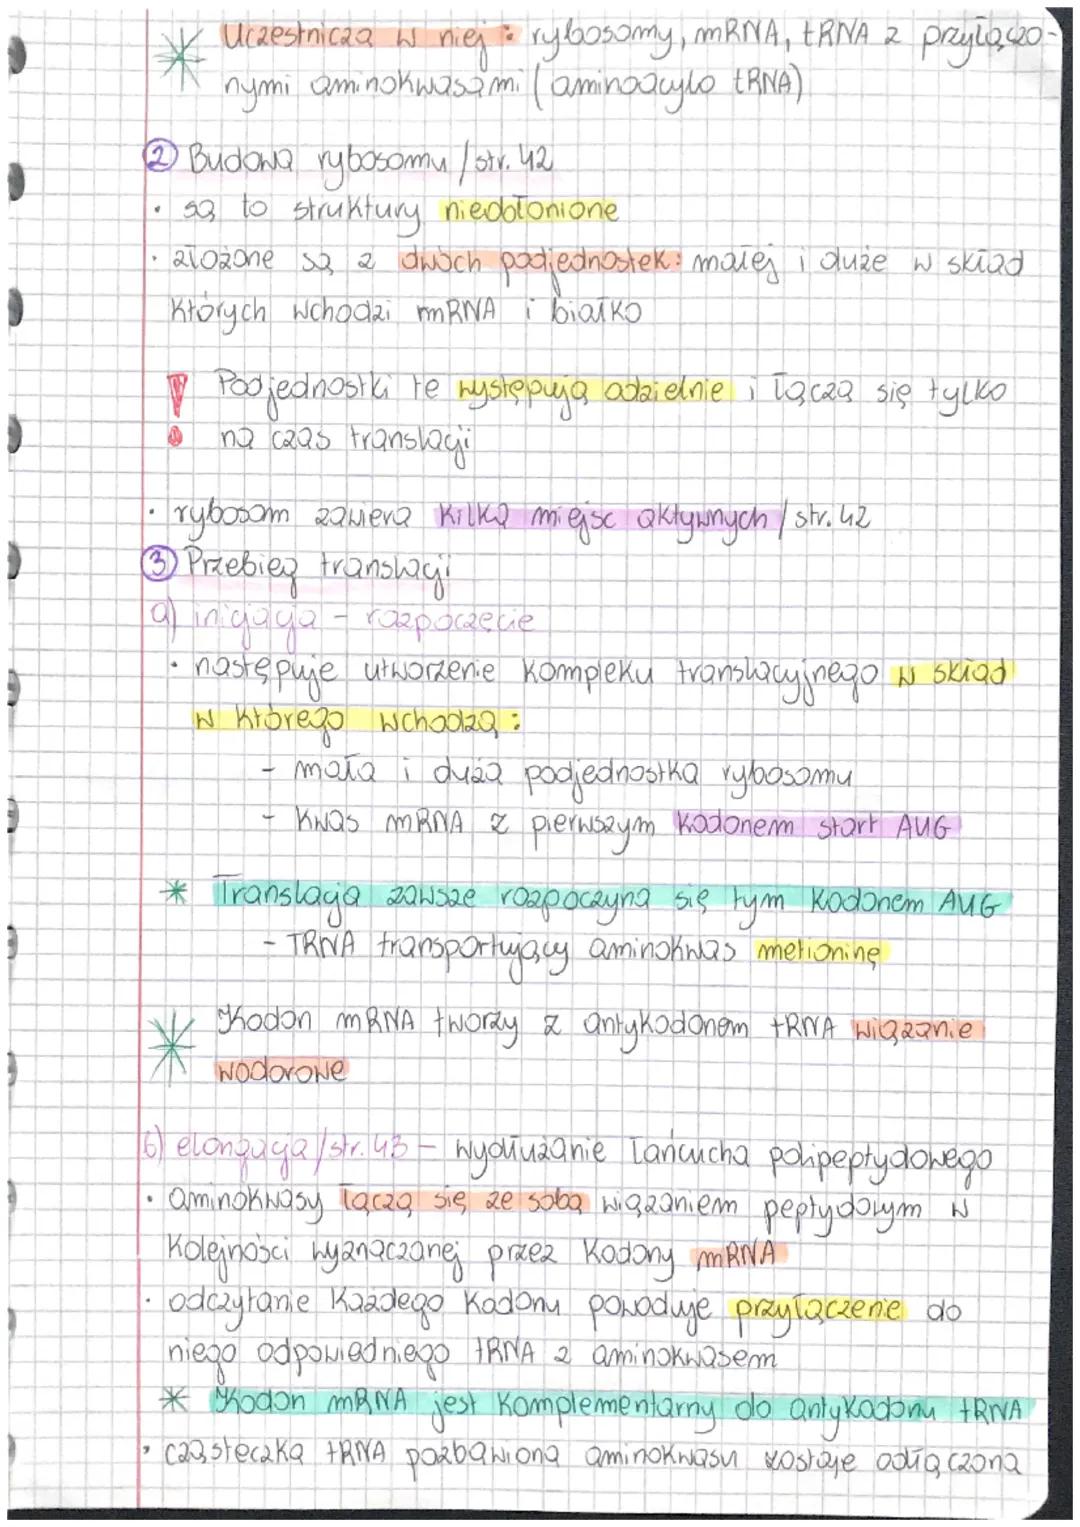 Uczestniczą w niej : rybosomy, mRNA, tRNA z przyłączo-
nymi aminokwasami (aminoacylo tRNA)
2 Budowa rybosomu / str. 42
• są to struktury niedobłonione
• złożone są z dwóch podjednostek: małej i duże w skład
których wchodzi mRNA i białko
! Podjednostki te występują odzielnie i łączą się tylko
na czas translacji
• rybosom zawiera kilka miejsc aktywnych / str. 42
3 Przebieg translacji
a) inicjacja - rozpoczęcie
• następuje utworzenie kompleku translacyjnego w skład
w którego wchodzą :
- mała i duża podjednostka rybosomu
- kwas mRNA z pierwszym kodonem start AUG
* Translacja zawsze rozpoczyna się tym kodonem AUG
- TRNA transportujący aminokwas metioninę
* Kodon mRNA tworzy z antykodonem tRNA wiązanie
wodorowe
b) elongacja / str. 43 - wydłużanie łańcucha polipeptydowego
• aminokwasy łączą się ze sobą wiązaniem peptydowym w
kolejności wyznaczanej przez kodony mRNA
• odczytanie każdego kodonu powoduje przyłączenie do
niego odpowiedniego tRNA z aminokwasem
* Kodon mRNA jest komplementarny do antykodonu tRNA
• cząsteczka tRNA pozbawiona aminokwasu zostaje odłączona